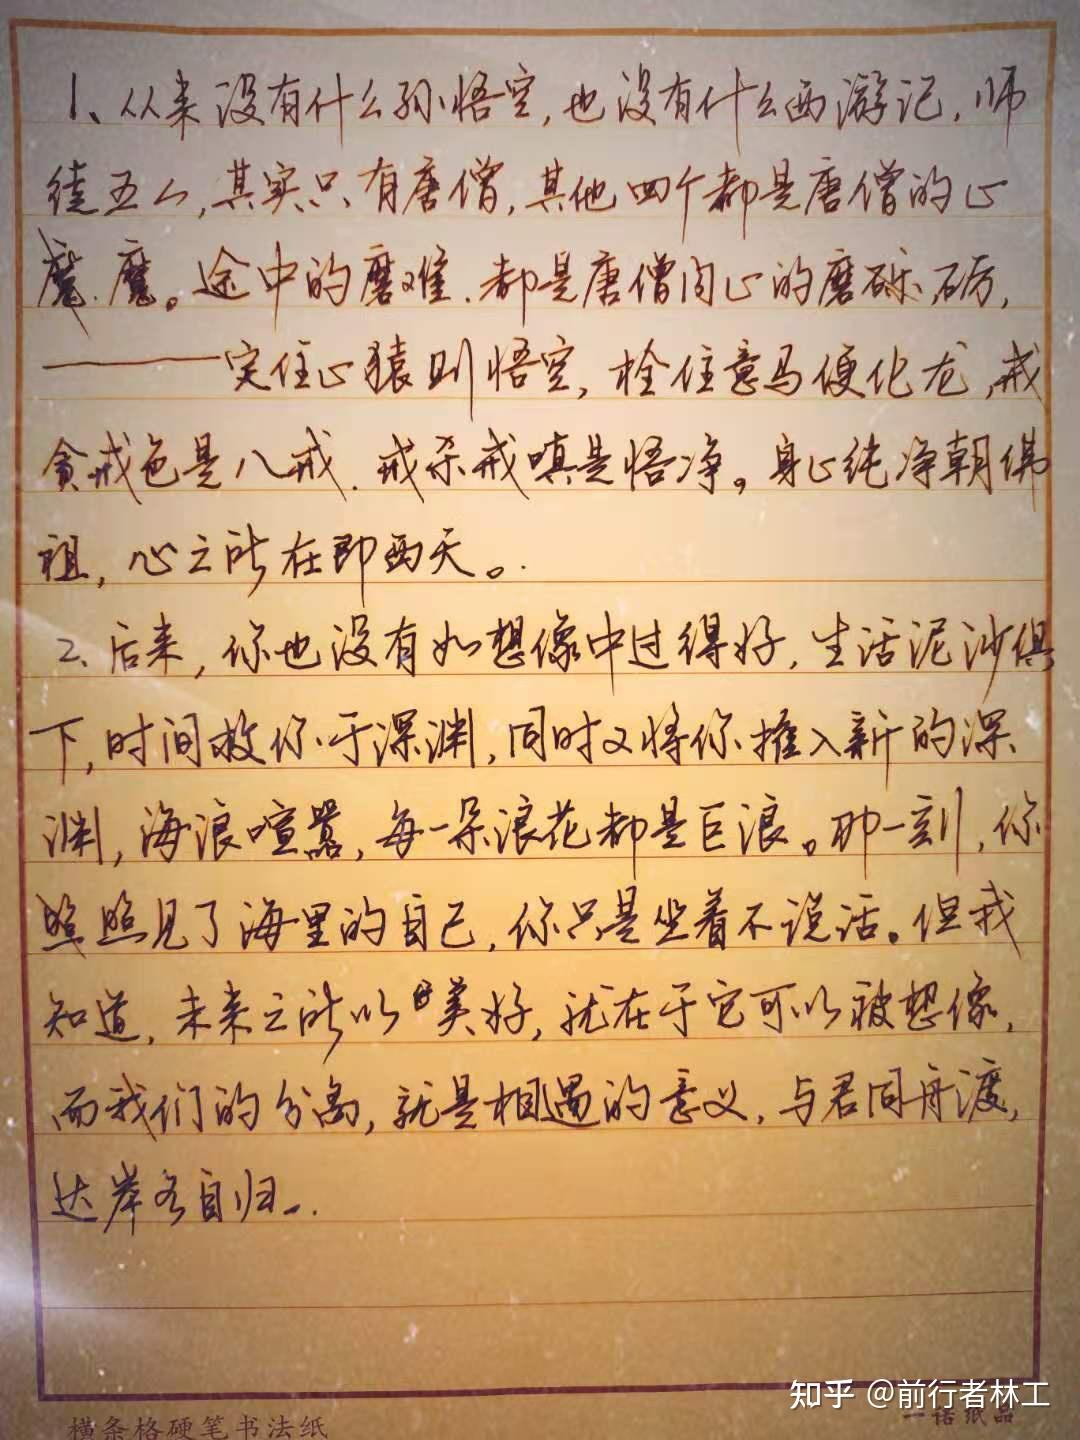 1、从来没有什么孙悟空，也没有什么西游记，师
徒五人，其实只有唐僧，其他四个都是唐僧的心
魔。途中的磨难，都是唐僧内心的磨砺，
——定住心猿则悟空，栓住意马便化龙，戒
贪戒色是八戒，戒杀戒嗔是悟净。身心纯净朝佛
祖，心之所在即西天。
2、后来，你也没有如想像中过得好，生活泥沙俱
下，时间救你于深渊，同时又将你推入新的深
渊，海浪喧嚣，每一朵浪花都是巨浪。那一刻，你
照见了海里的自己，你只是坐着不说话。但我
知道，未来之所以美好，就在于它可以被想像，
而我们的分离，就是相遇的意义，与君同舟渡，
达岸各自归。
知乎 @前行者林工
横条格硬笔书法纸